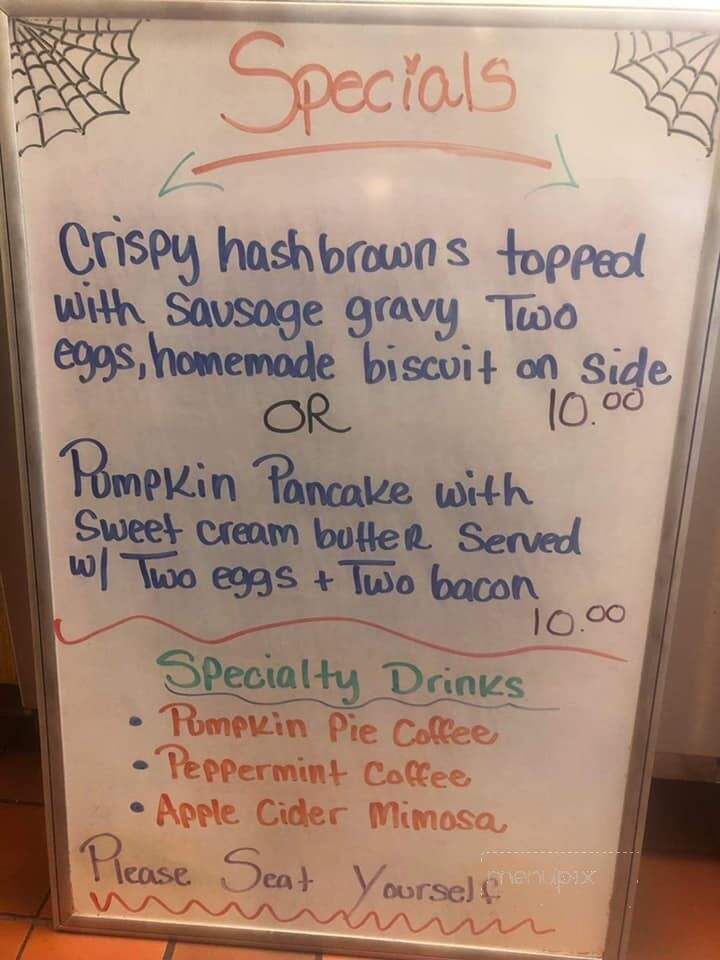 Specials
Crispy hashbrowns topped
with sausage gravy Two
eggs, homemade biscuit on side
OR 10.00
Pumpkin Pancake with
Sweet cream butter Served
w/ Two eggs + Two bacon
10.00
Specialty Drinks
• Pumpkin Pie Coffee
• Peppermint Coffee
• Apple Cider Mimosa
Please Seat Yourself
menupix